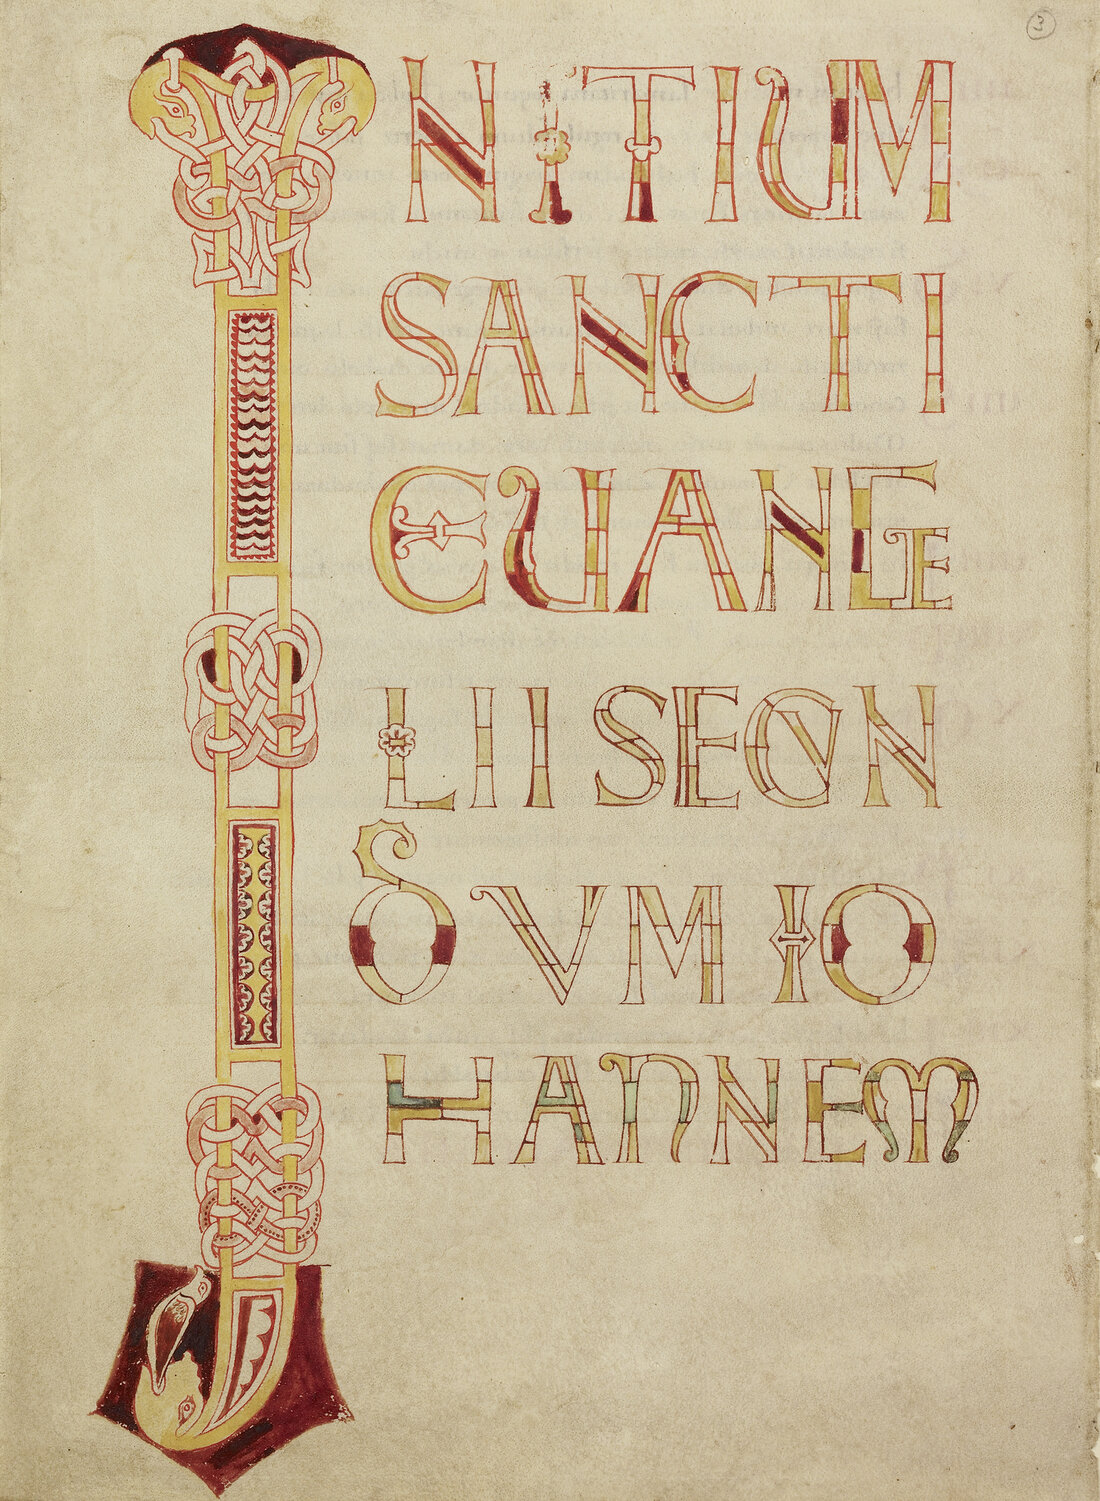 3
INITIUM
SANCTI
EUANGE
LII SECVN
DVM IO
HANNEM